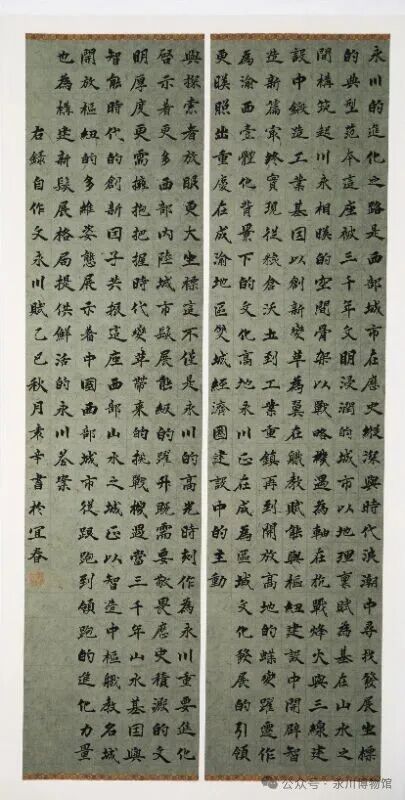 永川的進化之路是西部城市在歷史縱深與時代浪潮中尋找發展坐標
的典型范本這座被三千年文明浸潤的城市以地理重賦為基在山水之
間構筑起川永相映的空間骨架以戰略機遇為軸在抗戰烽火與三線建
設中鍛造工業基因以創新變革為翼在職教賦能與樞紐建設中開辟智
造新篇最終實現從糧倉沃土到工業重鎮再到開放高地的蝶變躍遷作
為渝西一體化背景下的文化高地永川正在成為區域文化發展的引領
更映照出重慶在成渝地區雙城經濟圈建設中的主動
與探索者放眼更大坐標這不僅是永川的高光時刻作為永川重要進化
啓示著更多西部內陸城市發展能級的躍升既需要敬畏歷史積澱的文
明厚度更需擁抱把握時代變革帶來的挑戰機遇當三千年山水基因與
智能時代的創新因子共振這座西部山水之城正以智造中樞職教名城
開放樞紐的多維姿態展示著中國西部城市從跟跑到領跑的進化力量
也為構建新發展格局提供鮮活的永川答案
右錄自作文永川賦乙巳秋月袁辛書於宜春
公众号·永川博物馆